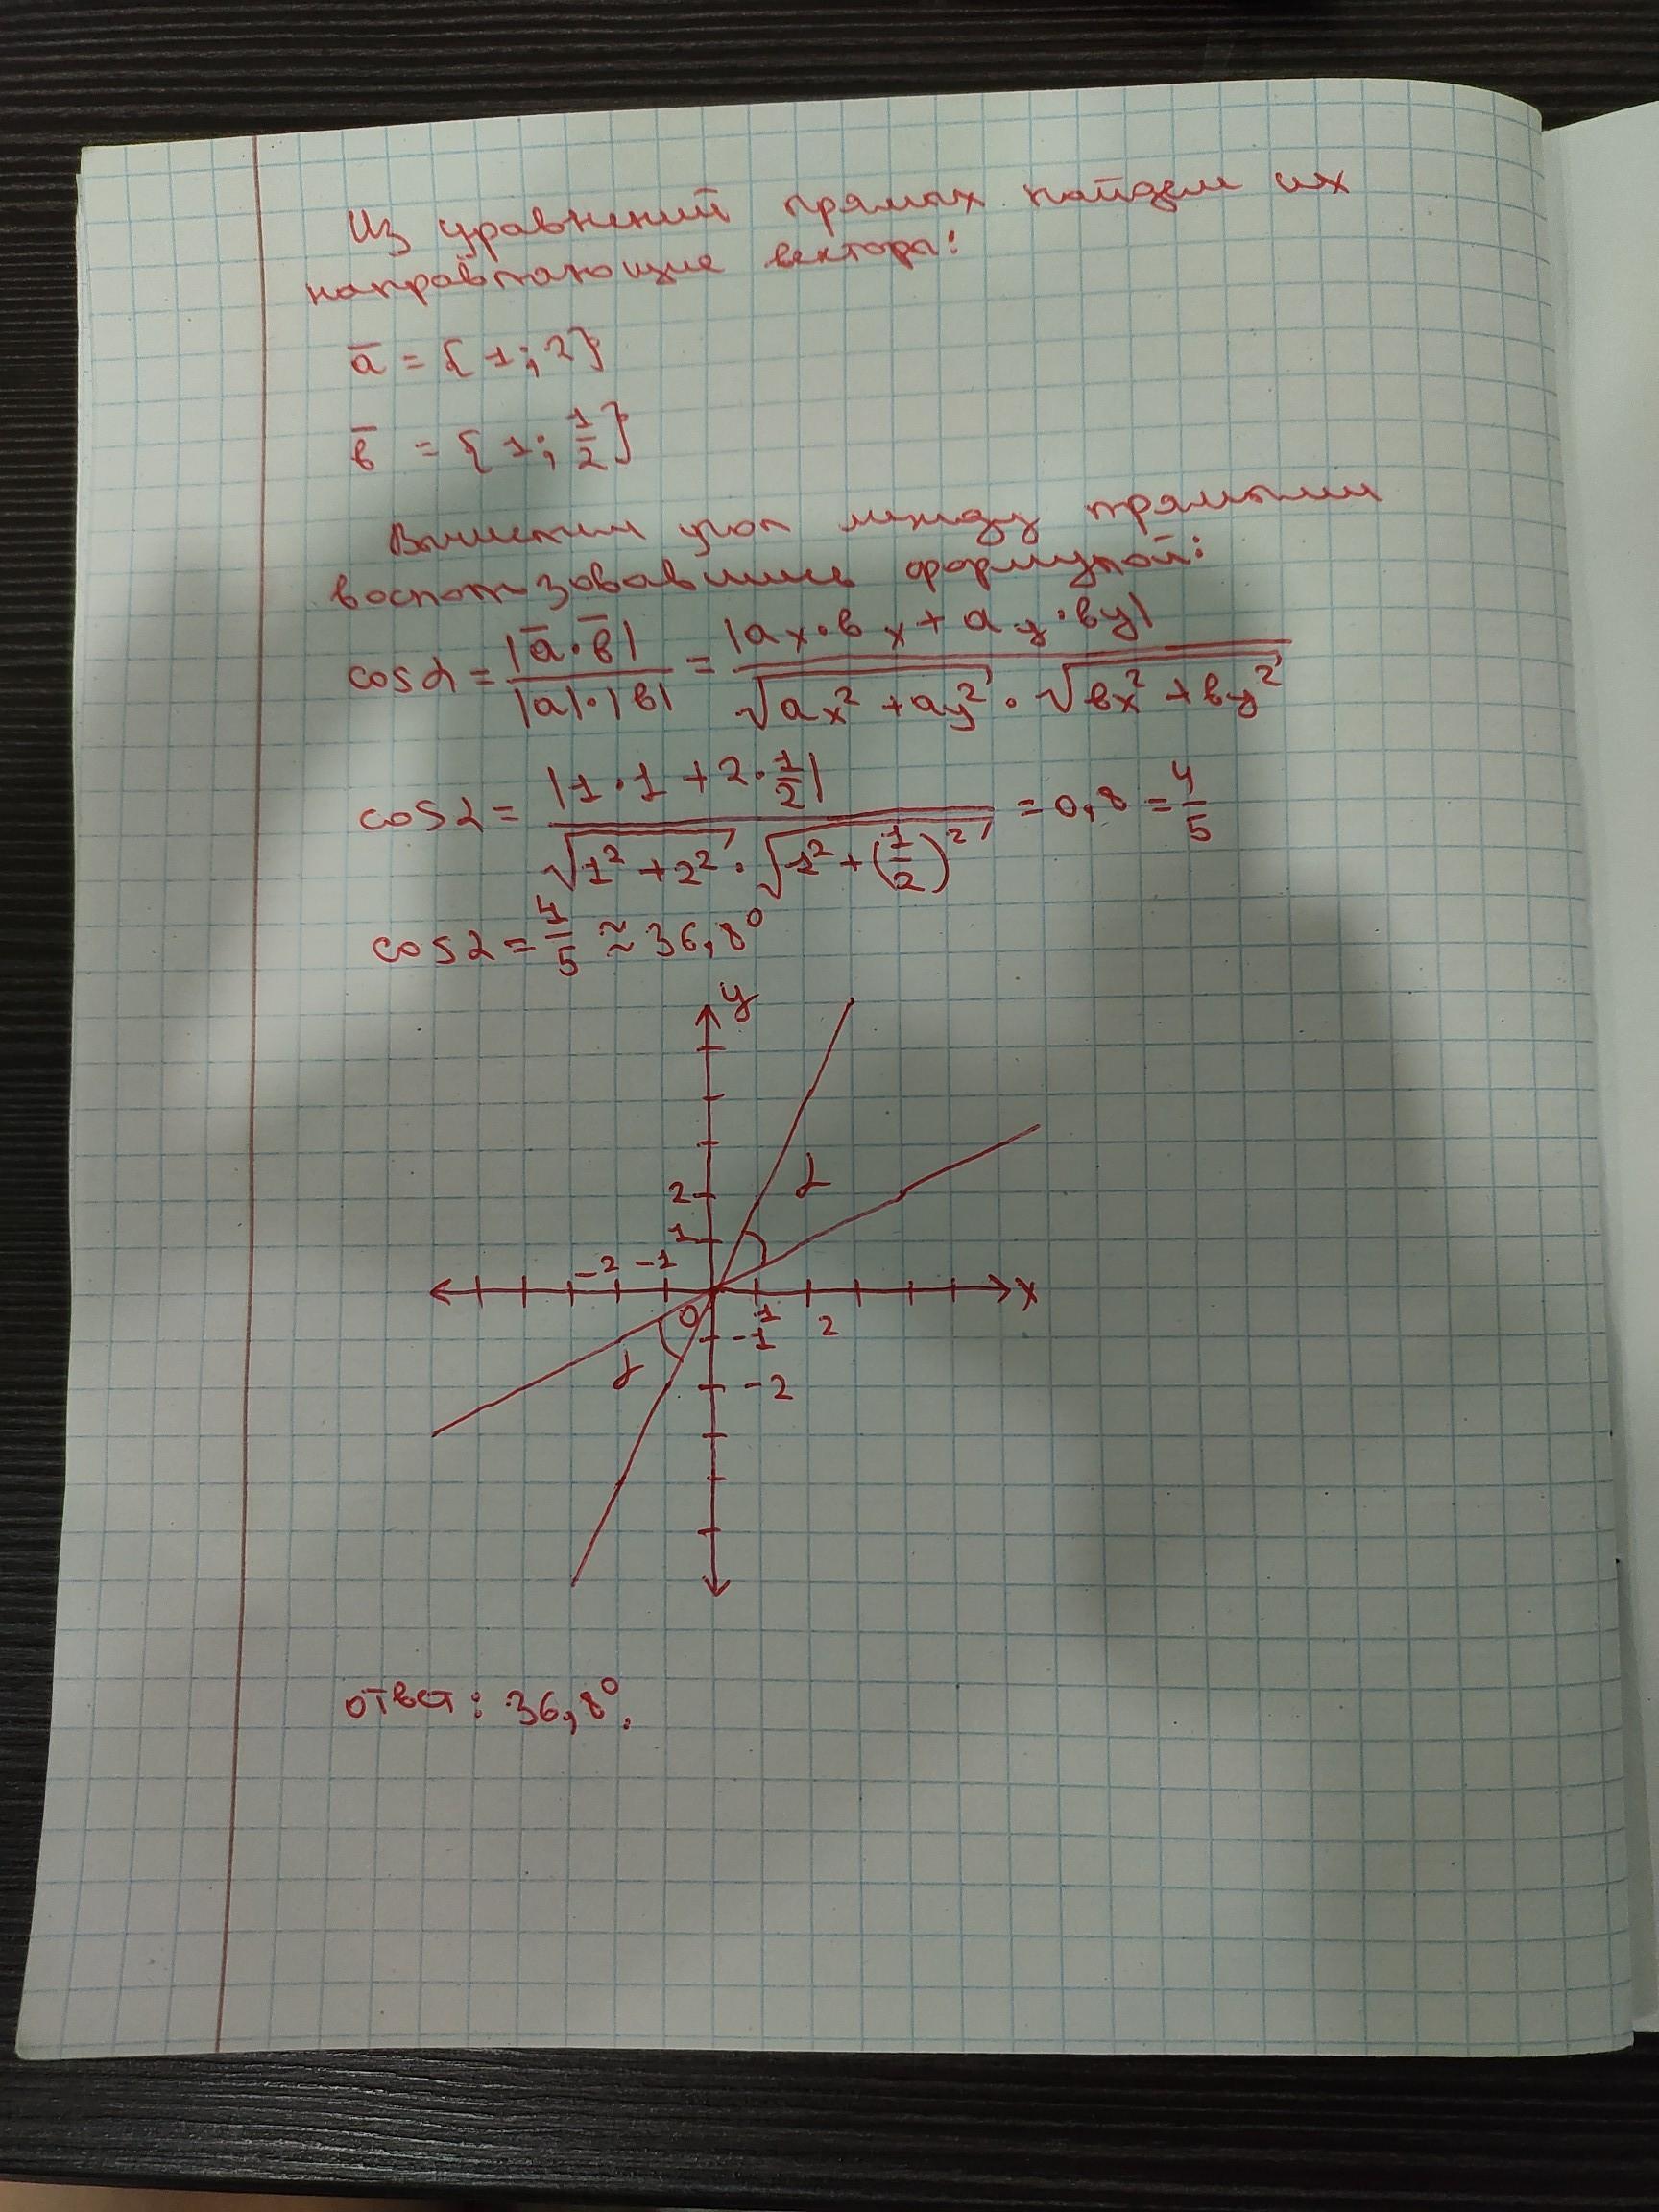 Из уравнений прямых найдем их
направляющие вектора:
a̅ = {1; 2}
в̅ = {1; 1/2}
Вычислим угол между прямыми
воспользовавшись формулой:
cos α = |a̅·в̅| / |a|·|в| = |ax·вx + ay·вy| / √(ax² + ay²) · √(вx² + вy²)
cos α = |1·1 + 2·1/2| / √(1² + 2²) · √(1² + (1/2)²) = 0,8 = 4/5
cos α = 4/5 ≈ 36,8°
y
α
2
1
-2 -1
x
0 1 2
-1
α
-2
ответ: 36,8°.